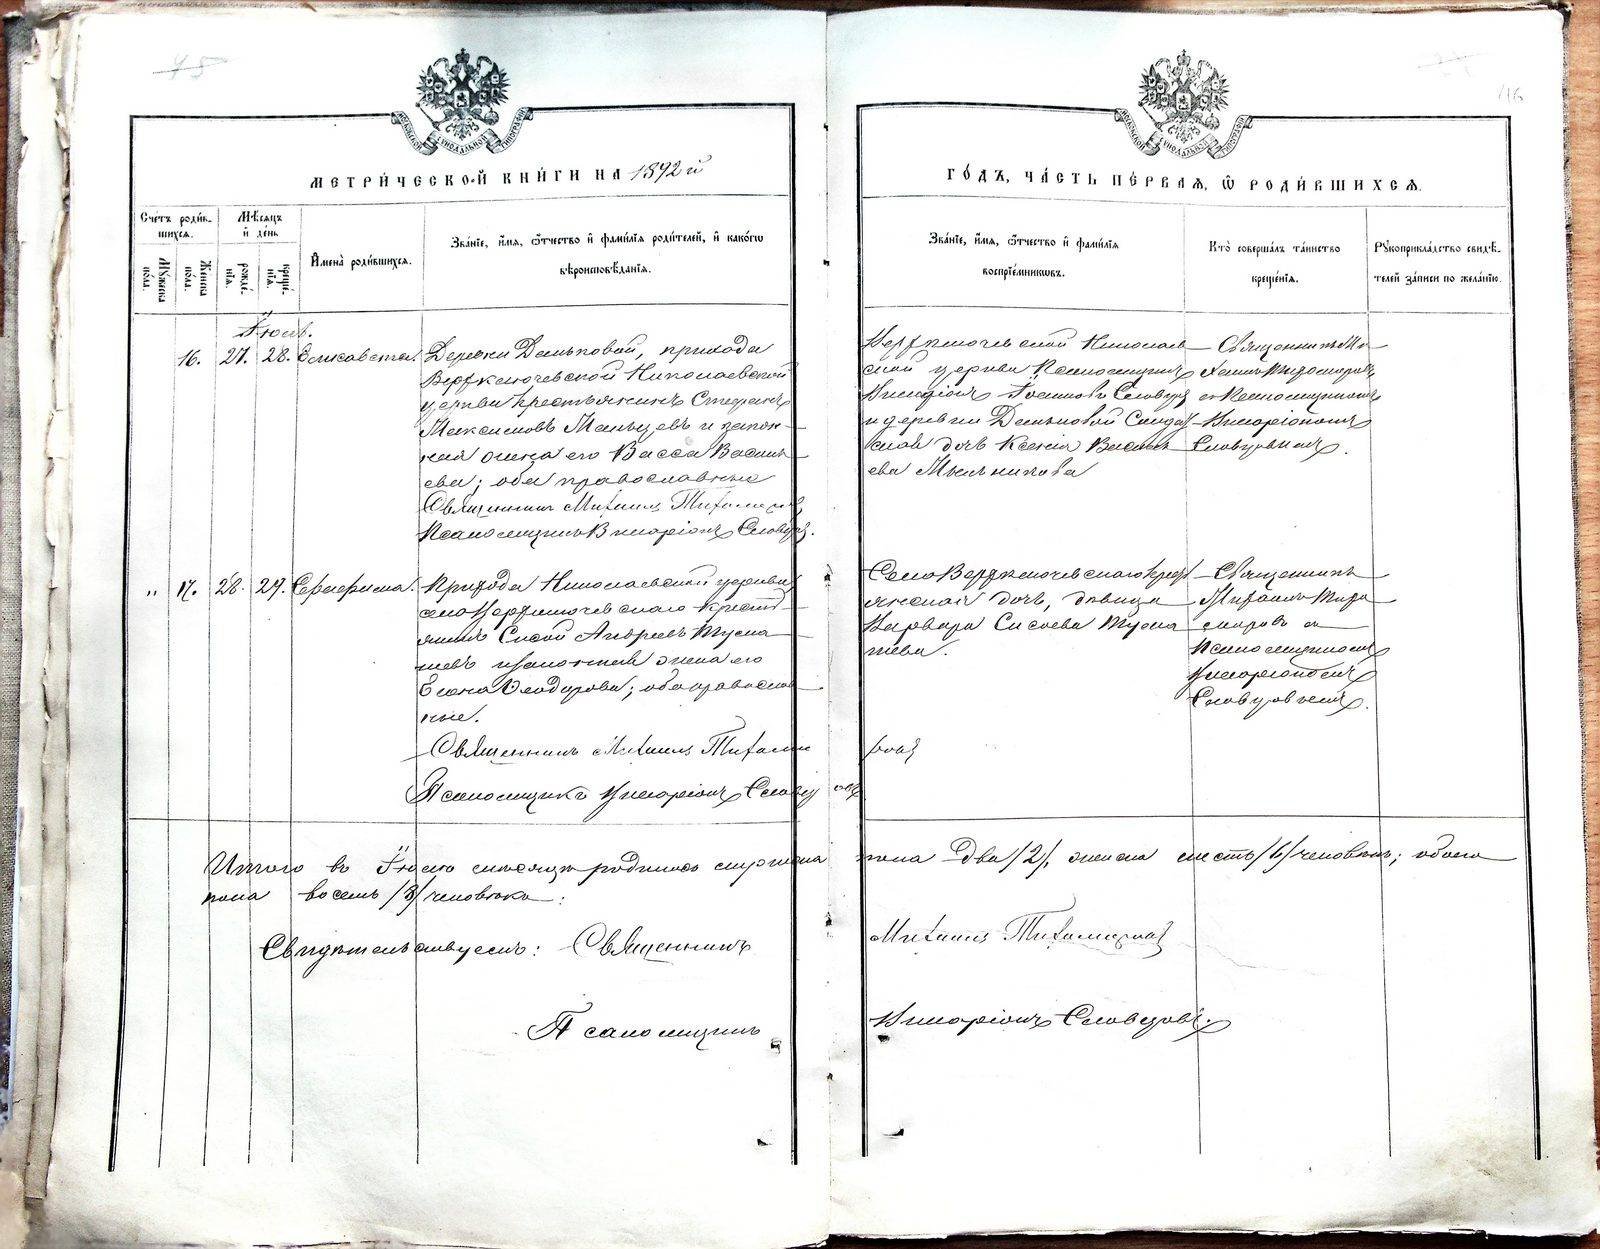 45
46
МОСКОВСКОЙ СѴНОДАЛЬНОЙ ТИПОГРАФІИ
МОСКОВСКОЙ СѴНОДАЛЬНОЙ ТИПОГРАФІИ
МЕТРИ́ЧЕСКОЙ КНИ́ГИ НА 1892 й
ГО́ДЪ, ЧА́СТЬ ПЕ́РВАЯ, Ѽ РОДИ́ВШИХСЯ.
Сче́тъ роди́в-
шихся.
Му́жеска по́ла.
Же́нска по́ла.
Мѣ́сяцъ
и҆ де́нь
рожде́-нїя.
креще́-нїя.
И҆мена̀ роди́вшихся.
Зва́нїе, и҆́мя, ѻ҆́тчество и҆ фами́лїя роди́телей, и҆ како́гѡ
вѣроисповѣ́данїя.
Зва́нїе, и҆́мя, ѻ҆́тчество и҆ фами́лїя
воспрїе́мникѡвъ.
Кто̀ соверша́лъ та́инство
креще́нїя.
Рꙋкоприкла́дство свидѣ́-
телей за́писи по жела́нїю.
Іюль.
16. 27. 28. Елисавета.
Деревни Даньковой, прихода
Верхключевской Николаевской
церкви крестьянинъ Стефанъ
Максимовъ Мальцевъ и закон-
ная жена его Васса Василь
ева; оба православные
Священникъ Михаилъ Тихомировъ
Псаломщикъ Иларіонъ Словцовъ.
Верхключевской Николаев
ской церкви Псаломщикъ
Иларіонъ Іоанновъ Словцовъ
и деревни Даньковой Солдат
ская дочь Ксенія Василь
ева Мыльникова
Священникъ Ми
хаилъ Тихомировъ
съ Псаломщикомъ
Иларіономъ
Словцовымъ.
" 17. 28. 29. Серафима.
Прихода Николаевской церкви
села Верхключевскаго крестья
нинъ Сисой Андреевъ Тума
шевъ и законная жена его
Елена Феодорова; оба православ
ные.
Священникъ Михаилъ Тихоми ровъ
Псаломщикъ Иларіонъ Словц овъ
Села Верхключевскаго кресть
янская дочь, дѣвица
Варвара Сисоева Тума
шева.
Священникъ
Михаилъ Тихо
мировъ съ
Псаломщикомъ
Иларіономъ
Словцовымъ.
Итого въ Іюлѣ мѣсяцѣ родилось мужеска пола два /2/, женска шесть /6/ человѣкъ; обоего
пола восемь /8/ человѣкъ.
Свидѣтельствуемъ: Священникъ Михаилъ Тихомировъ
Псаломщикъ Иларіонъ Словцовъ.